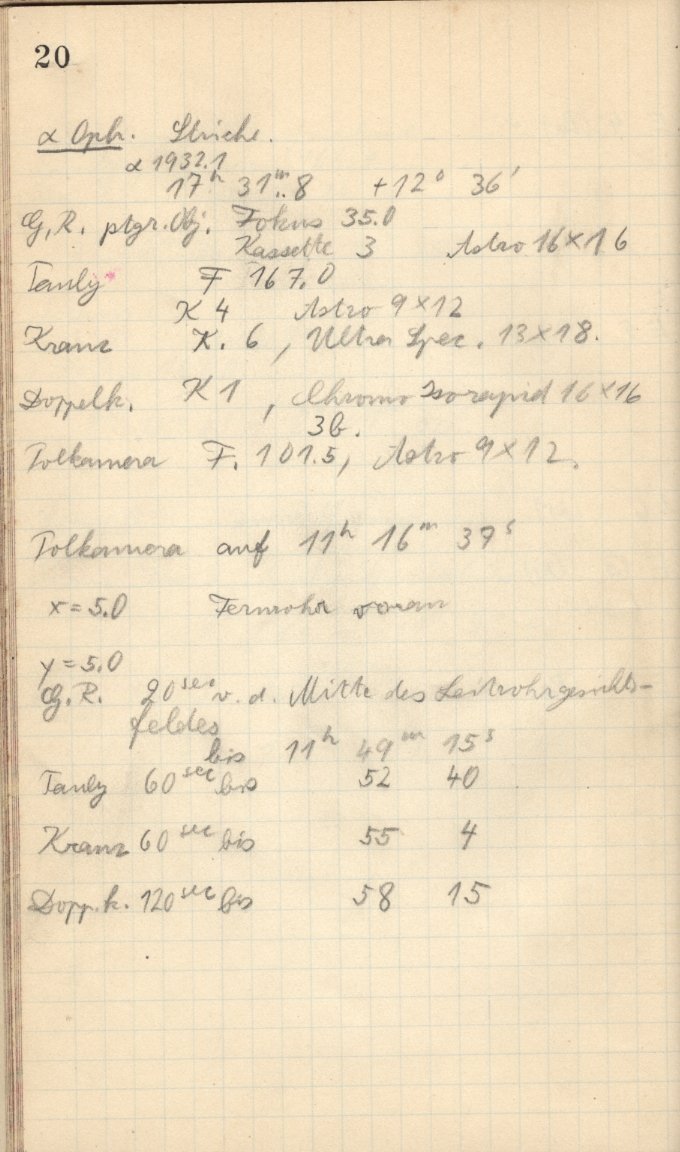 20
α Oph. Striche.
α 1932.1
17ʰ 31ᵐ.8 +12° 36′
G.R. ptgr. Obj. Fokus 35.0
Kassette 3 Astro 16×16
Tauly F 167.0
K 4 Astro 9×12
Kranz K. 6, Ultra Spec. 13×18.
Doppelk. K 1, Chromo Isorapid 16×16
3b.
Polkamera F. 101.5, Astro 9×12.
Polkamera auf 11ʰ 16ᵐ 37ˢ
x = 5.0 Fernrohr voran
y = 5.0
G.R. 20ˢᵉᶜ v. d. Mitte des Leitrohrgesichts-
feldes
bis 11ʰ 49ᵐ 15ˢ
Tauly 60ˢᵉᶜ bis 52 40
Kranz 60ˢᵉᶜ bis 55 4
Dopp.k. 120ˢᵉᶜ bis 58 15